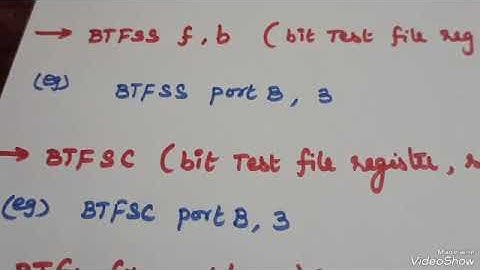 → BTFSS f, b (bit Test file reg
(eg) BTFSS port B, 3
→ BTFSC (bit Test file register, s
(eg) BTFSC port B, 3
Made with
VideoShow